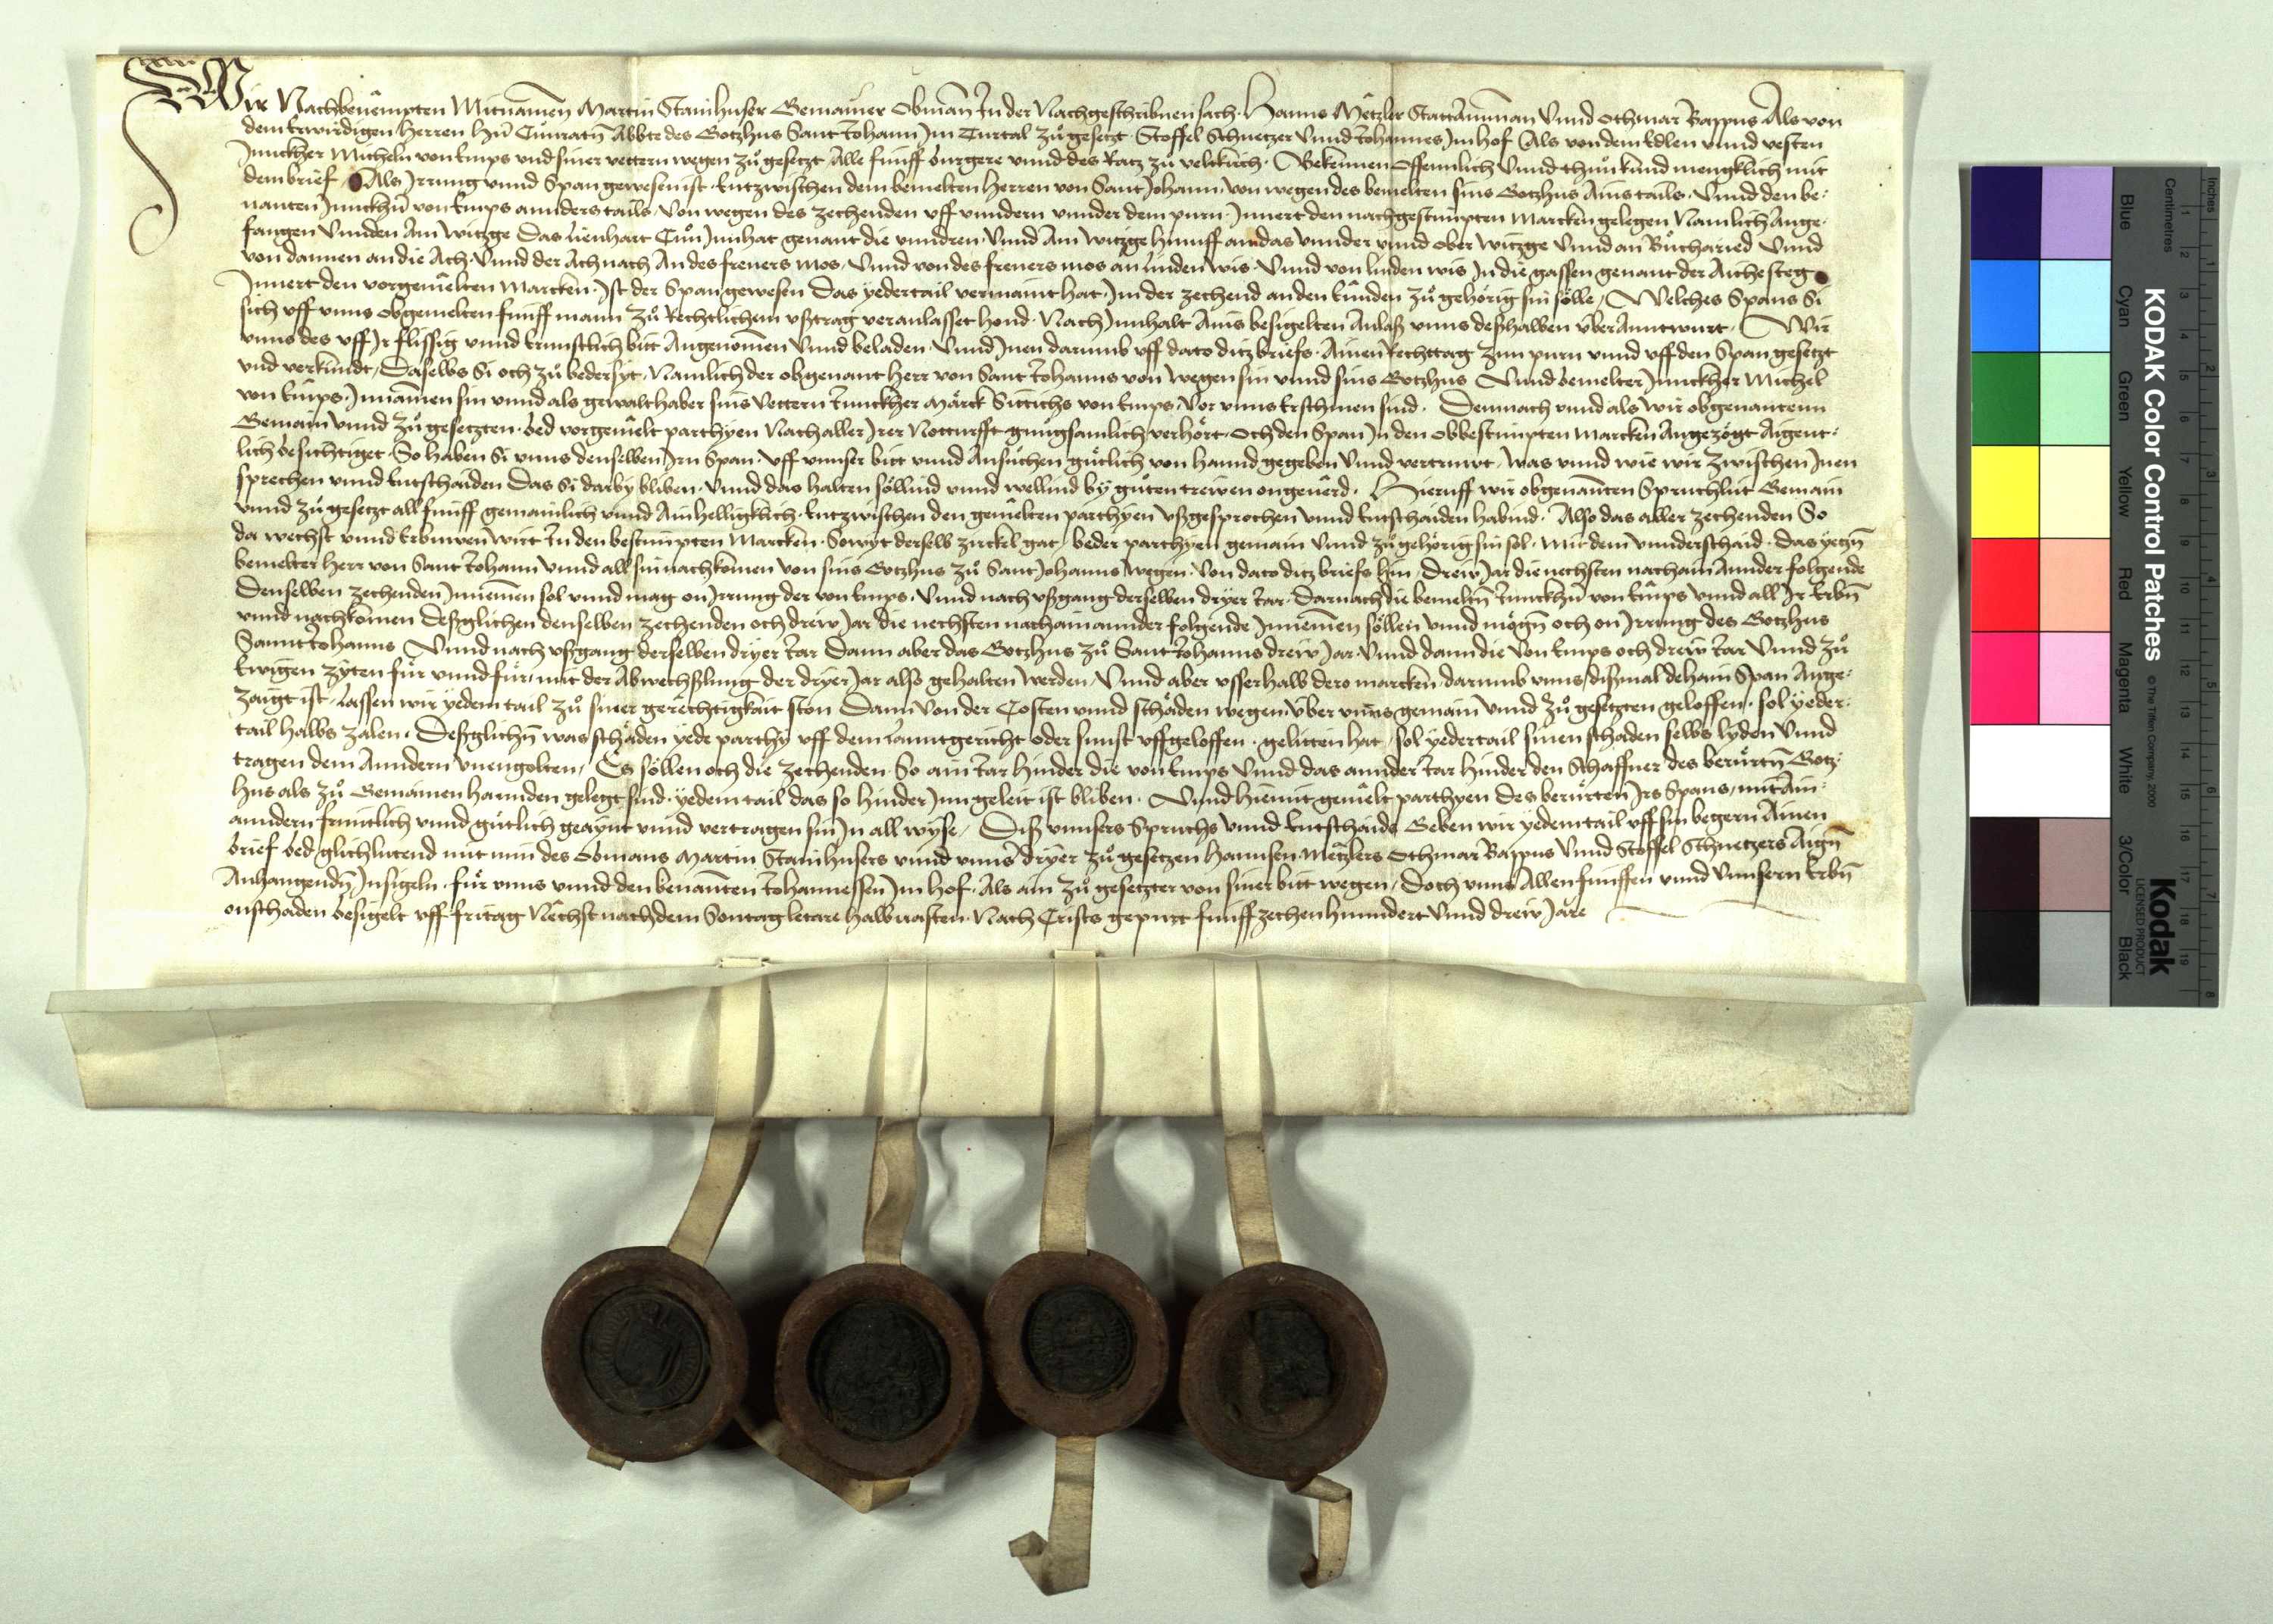 Wir Nachbenêmpten Mitnamen Martin Stainhuser Gemainer Obman In der Nachgeschribnen sach. Hanns Metzler Stattamman Vnnd Othmar Bappus Als von
dem Erwirdigen Herren Hern Cunratn Abbte des Gotzhus Sant Johann Im Turtal zuͦ gesetzt. Stoffel Schnetzer Vnnd Johannes Im hof Als von dem Edlen vnnd vesten
Junckher Micheln von Emps vnd siner vettern wegen zuͦ gesetzt Alle funff burgere vnnd des Ratz zuͦ veltkirch. Bekennen Offennlich Vnnd thuͦn kund mengklich mit
dem brief Als Irrung vnnd Span gewesen ist. Entzwischen dem bemelten herren von Sant Johann, von wegen des bemelten sins Gotzhus Ains tails. Vnnd den be-
nanten Junckhn von Emps annders tails, von wegen des zechenden vff vnndern vnnder dem purn. Innert den nachgestimpten Marcken gelegen Namlich Ange-
fangen Vnnden Am witzge Das Lienhart Cuͦn Innhat genant die vnndren Vnnd Am witzge hinuff an das vnnder vnnd ober witzge Vnnd an Buͦcharied Vnnd
von dannen an die Ach. Vnnd der Ach nach An des freners mos, Vnnd von des freners mos an linden wis. Vnnd von linden wis In die gassen genant der Aichesteg
Innert den vorgemelten Marcken. Ist der Span gewesen Das yedertail vermaint hat, Im der zechend an den Enden zuͦ gehörig sin sölle, Welches Spans Si
sich vff vnns obgemelten funff mann zuͦ Rechtlichem vßtrag veranlasset hond. Nach Innhalt Ains besigelten Anlaß vnns deßhalben vberanntwurt. Wir
vnns des vff Ir flissig vnnd Ernnstlich bitt Angenomen Vnnd beladen. Vnnd Inen darumb vff dato ditz briefs. Ainen Rechttag zum purn vnnd vff den Span gesetzt
vnd verkundt, Daselbs Si och zuͦ bedersyt. Namlich der obgenant herr von Sant Johanns von wegen sin vnnd sins Gotzhus Vnnd bemelter Junckher Michel
von Emps. Innamen sin vnnd als gewalthaber sins Vettern Junckher Märck Sittichs von Emps, Vor vnns Erschinen sind. Demnach vnnd als wir obgenantenn
Gemain vnnd zuͦ gesetzten. bed vorgemelt parthyen Nach aller Irer Notturfft gnuͦgsamlich verhört, och den Span In den obbestimpten Marcken Angezögt Aigent-
lich besichtiget. So haben Si vnns denselben Irn Span. vff vnnser bitt vnnd Ansuͦchen guͤtlich von hannd gegeben Vnnd vertruwt, was vnnd wie wir zwischen Inen
sprechen vnnd Entschaiden Das Si darby bliben. Vnnd das halten söllind vnnd wellind by guͦten treiwen ongeuerd. Hieruff wir obgenanten Spruchlut Gemain
vnnd zuͦ gesetzt all funff gemainlich vnnd Ainhelligklich. Entzwischen den gemelten parthyen vßgesprochen vnnd Entschaiden habind. Also das aller zechenden So
da wechst vnnd Erbuwen wirt In den bestimpten Marcken. Sowyt derselb zirckel gat, beder parthyen gemain Vnnd zuͦ gehörig sin sol. Mit dem vnnderschaid. Das yetzn
bemelter herr von Sant Johann Vnnd all sin nachkomen von sins Gotzhus zuͦ Sant Johanns wegen. von dato ditz briefs hin, Dreiw Jar die nechsten nachain annder folgende
Denselben zechenden Innemen sol vnnd mag on Irrung der von Emps. Vnnd nach vßgang derselben dryer Jar. Darnach die bemeltn Junckhn von Emps vnnd all Ir Erbn
vnnd nachkomen Deßglichen denselben zechenden och dreiw Jar die nechsten nachainannder folgende Innemen söllen vnnd mögn och on Irrung des Gotzhus
Sannt Johanns Vnnd nach vßgang derselben dryer Jar Dann aber das Gotzhus zuͦ Sant Johanns dreiw Jar. Vnnd dann die von Emps och dreiw Jar Vnnd zuͦ
Ewigen zyten fuͤr vnnd fuͤr, mit der Abwechßlung der dryer Jar also gehalten werden, Vnnd aber vsserhalb dero marcken, darumb vnns dißmal dehain Span Ange-
zaigt ist, lassen wir yedem tail zuͦ siner gerechtigkait ston Dann von der Costen vnnd schäden wegen, vber vnns gemain vnnd zuͦ gesetzten geloffen, sol yeder-
tail halbs zalen. Deßglichn was schäden yede parthy vff dem lanntgericht oder sunst vffgeloffen. gelitten hat, sol yedertail sinen schaden selbs lyden Vnnd
tragen dem Anndern vnengolten, Es söllen och die zechenden. So ain Jar hinder die von Emps Vnnd das annder Jar hinder den Schaffner des beruͤrtn Gotz-
hus als zuͦ Gemainen hannden gelegt sind. yedem tail das so hinder Inn geleit ist bliben. Vnnd hiemit gemelt parthyen des beruͤrten Irs Spans, mit Ain-
anndern fruntlich vnnd guͤtlich geaynt vnnd vertragen sin In all wyse, Diß vnnsers Spruchs Vnnd Entschaids Geben wir yedem tail vff sin begern Ainen
brief bed glichlutend mit min des Obmans Martin Stainhusers vnnd vnns dryer zuͦ gesetzen Hannsen Metzlers Othmar Bappus Vnnd Stoffel Schnetzers Aign
Anhangendn Insigeln. fuͤr vnns vnnd den benanten Johannessen Im hof. Als ain zuͦ gesetzter von siner bitt wegen, Doch vnns Allen funffen vnnd Vnnsern Erbn
onschaden besigelt vff fritag Nechst nach dem Sontag letare halbuasten. Nach Cristo gepurt funffzechenhunndert Vnnd dreiw Jare
KODAK Color Control Patches
© The Tiffen Company, 2000
Kodak
LICENSED PRODUCT
Blue Cyan Green Yellow Red Magenta White 3/Color Black
Inches 1 2 3 4 5 6 7 8
Centimetres 1 2 3 4 5 6 7 8 9 10 11 12 13 14 15 16 17 18 19